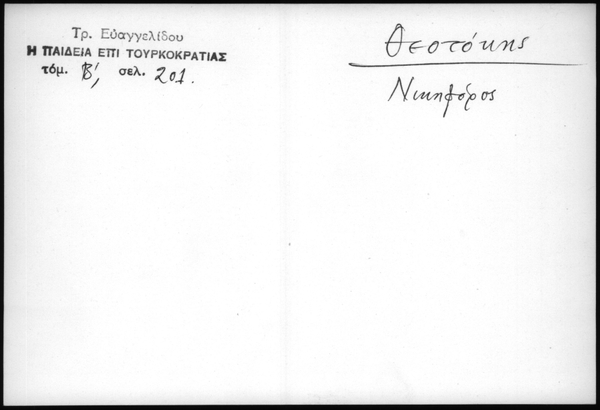 Τρ. Εὐαγγελίδου
Η ΠΑΙΔΕΙΑ ΕΠΙ ΤΟΥΡΚΟΚΡΑΤΙΑΣ
τόμ. Β', σελ. 201.
Θεοτόκης
Νικηφόρος